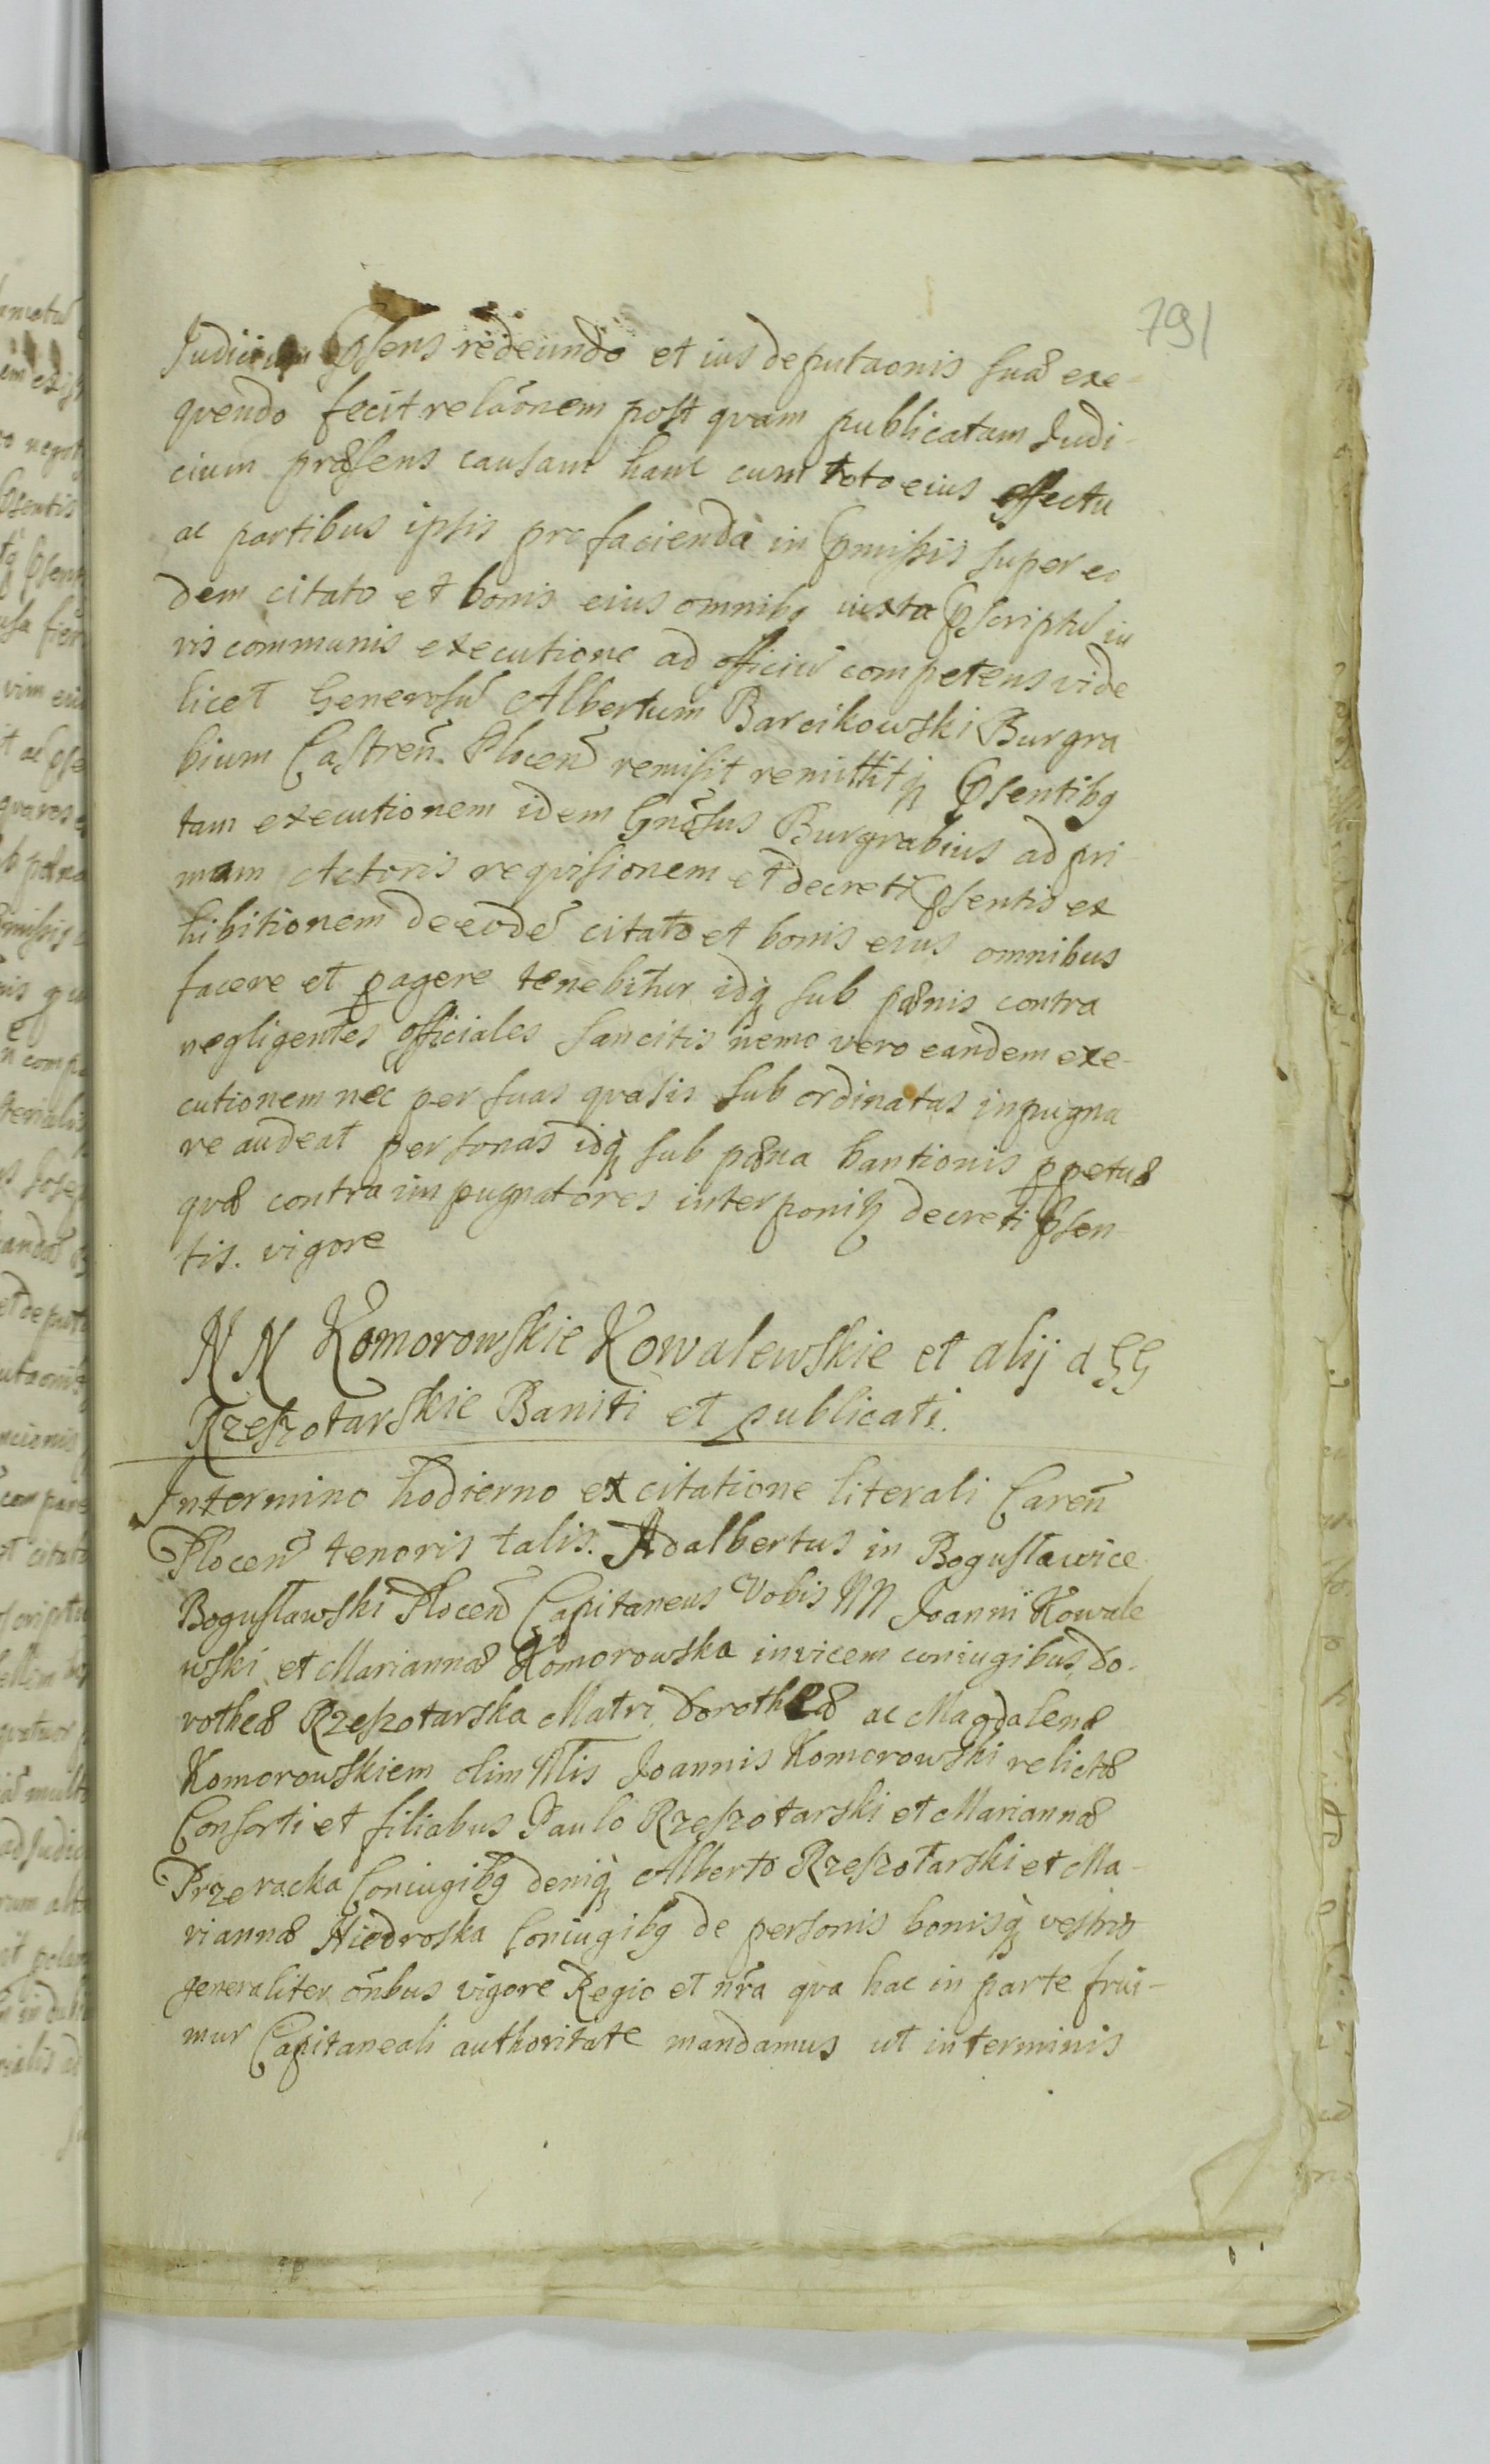 791
Judicium pñsens redeundo et ius deputaõnis suæ exe-
quendo fecit relaõnem post quam publicatam Judi-
cium præsens causam hanc cum toto eius effectu
ac partibus ipsis pro facienda in pmissis super eo
dem citato et bonis eius omnibq iuxta pscriptũ iu
ris communis executione ad officiũ competens vide
licet Generosũ Albertum Barcikowski Burgra
bium Castreñ Ploceñ remisit remittitq psentibq
tam executionem idem Gnõsus Burgrabius ad pri
mam Actoris requisionem et decreti psentis ex
hibitionem de eodẽ citato et bonis eius omnibus
facere et pagere tenebitur idq sub pænis contra
negligentes officiales sancitis nemo vero eandem exe-
cutionem nec per suas quasis sub ordinatas inpugna
re audeat personas idq sub pæna banitionis ppetuæ
quæ contra impugnatores interponitr decreti psen-
tis. vigore
NN Komorowskie Kowalewskie et alij a GG
Rzeszotarskie Baniti et publicati.
In termino hodierno ex citatione literali Castreñ
Ploceñ tenoris talis. Adalbertus in Bogusławice
Bogusławski Ploceñ Capitaneus Vobis NN Joanni Kowale
wski et Mariannæ Komorowska invicem coniugibus, do-
rotheæ Rzeszotarska Matri, Dorotheæ ac Magdalenæ
Komorowskiem olim Nlis Joannis Komorowski relictæ
Consorti et filiabus Paulo Rzeszotarski et Mariannæ
Przeracka Coniugibq deniq Alberto Rzeszotarski et Ma-
riannæ Niedroska Coniugibq de personis bonisq vestris
generaliter õnbus vigore Regio et nr̃a qua hac in parte frui-
mur Capitaneali authoritate mandamus ut in terminis